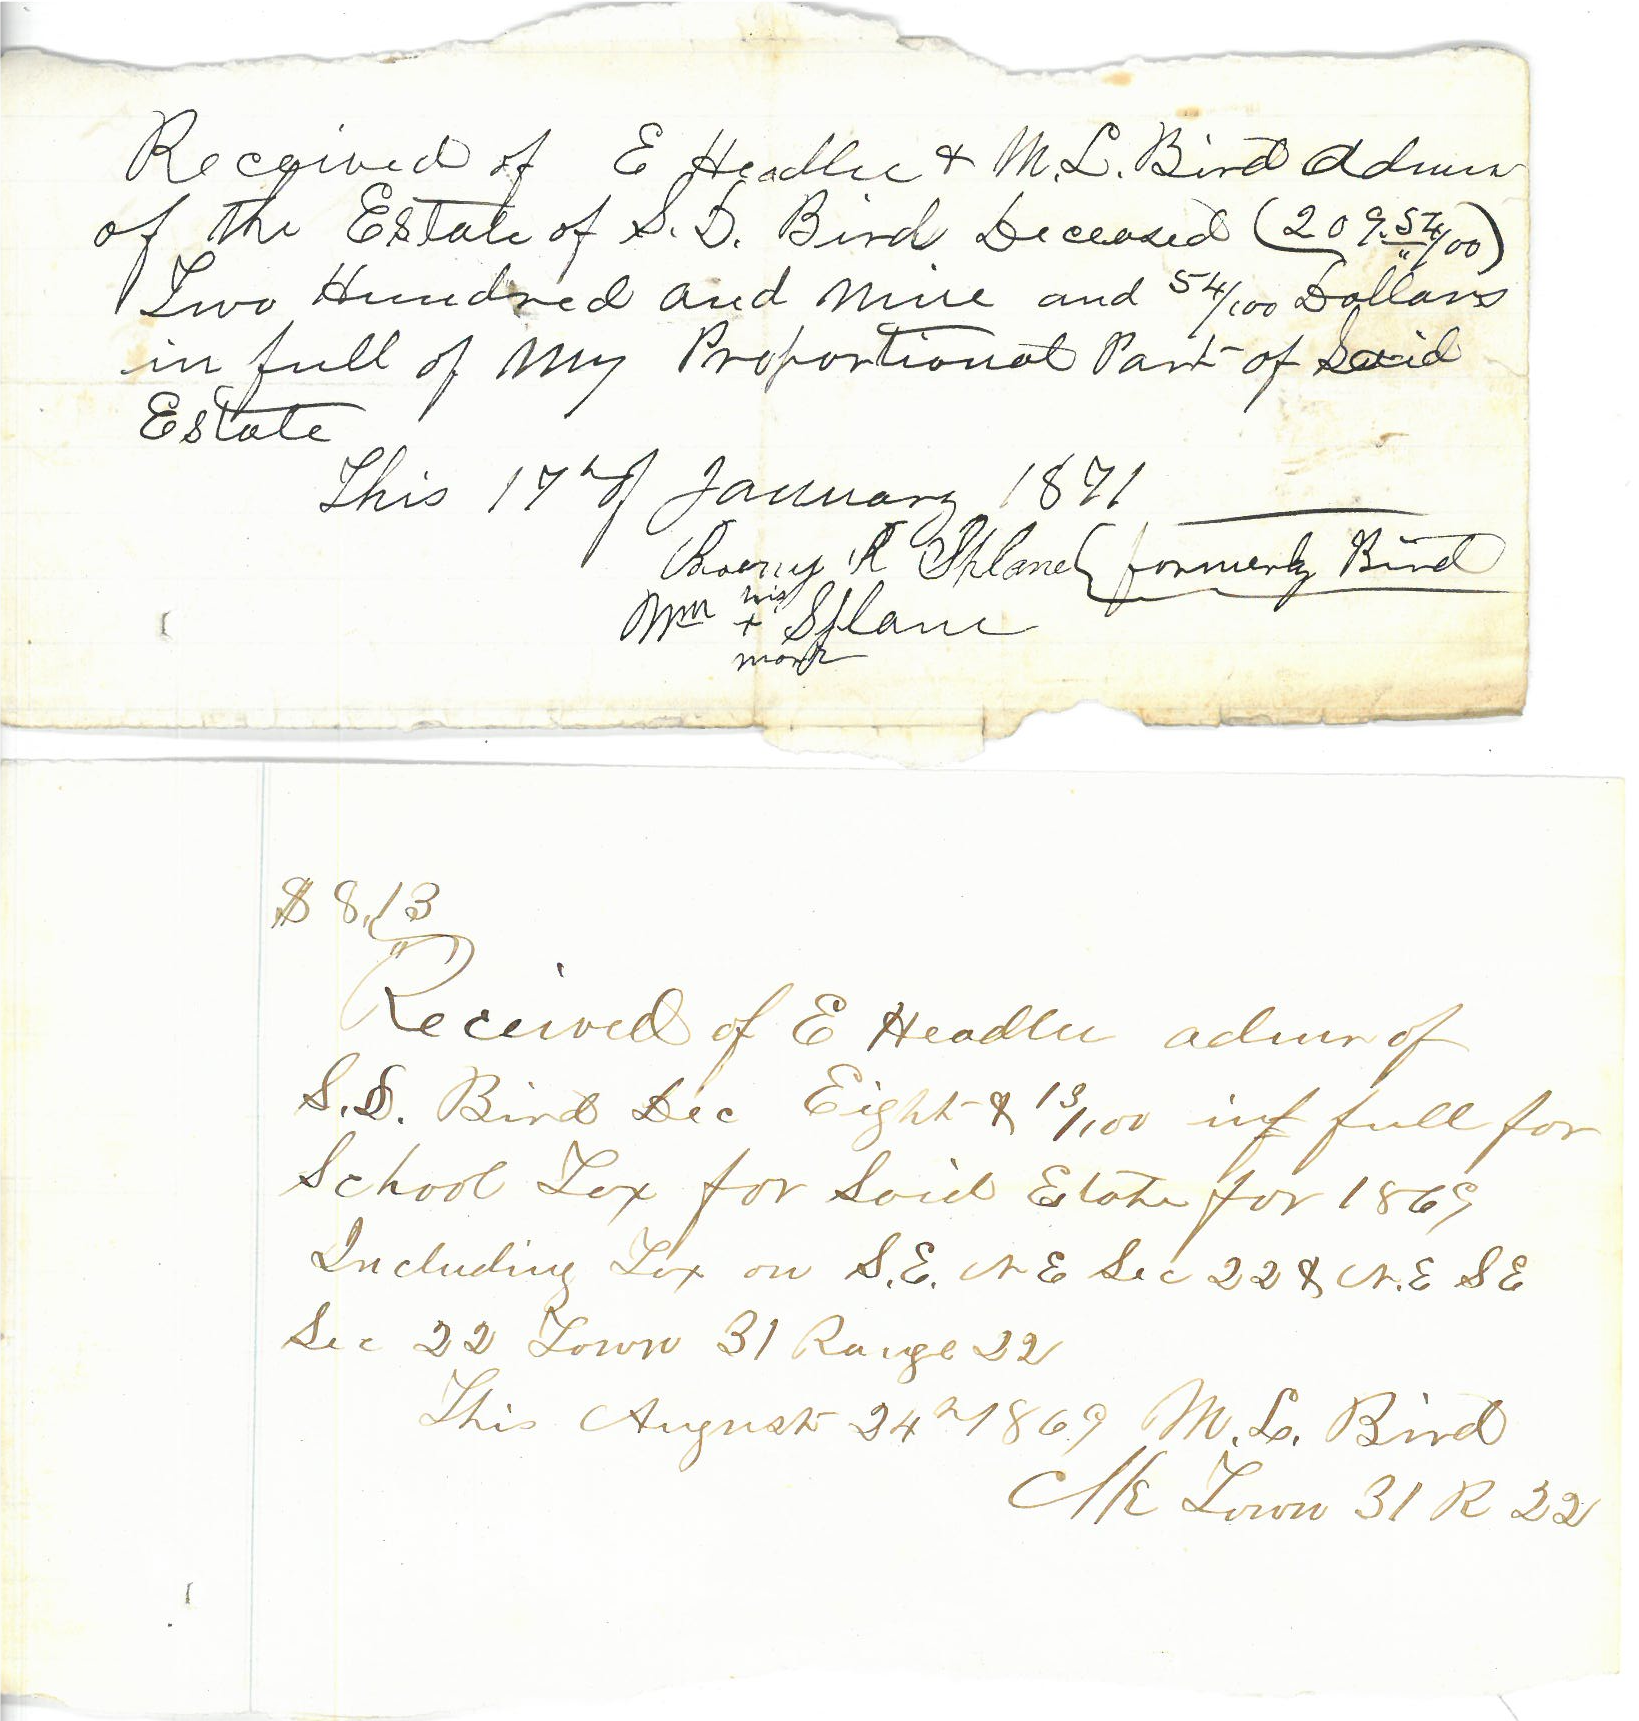 Received of E Headlee & M.L. Bird Admrs
of the Estate of S. D. Bird Deceased (209.54/100)
Two Hundred and Nine and 54/100 Dollars
in full of My Proportional Part of Said
Estate
This 17th of January 1871
R Splane {formerly Bird
his
Wm + Splane
mark
$8.13
Received of E Headlee admr of
S.D. Bird Dec Eight & 13/100 in full for
School Tax for Said Estate for 1869
Including Tax on S.E. N E Sec 22 & N.E SE
Sec 22 Town 31 Range 22
This August 24th 1869 M. L. Bird
Clk Town 31 R 22